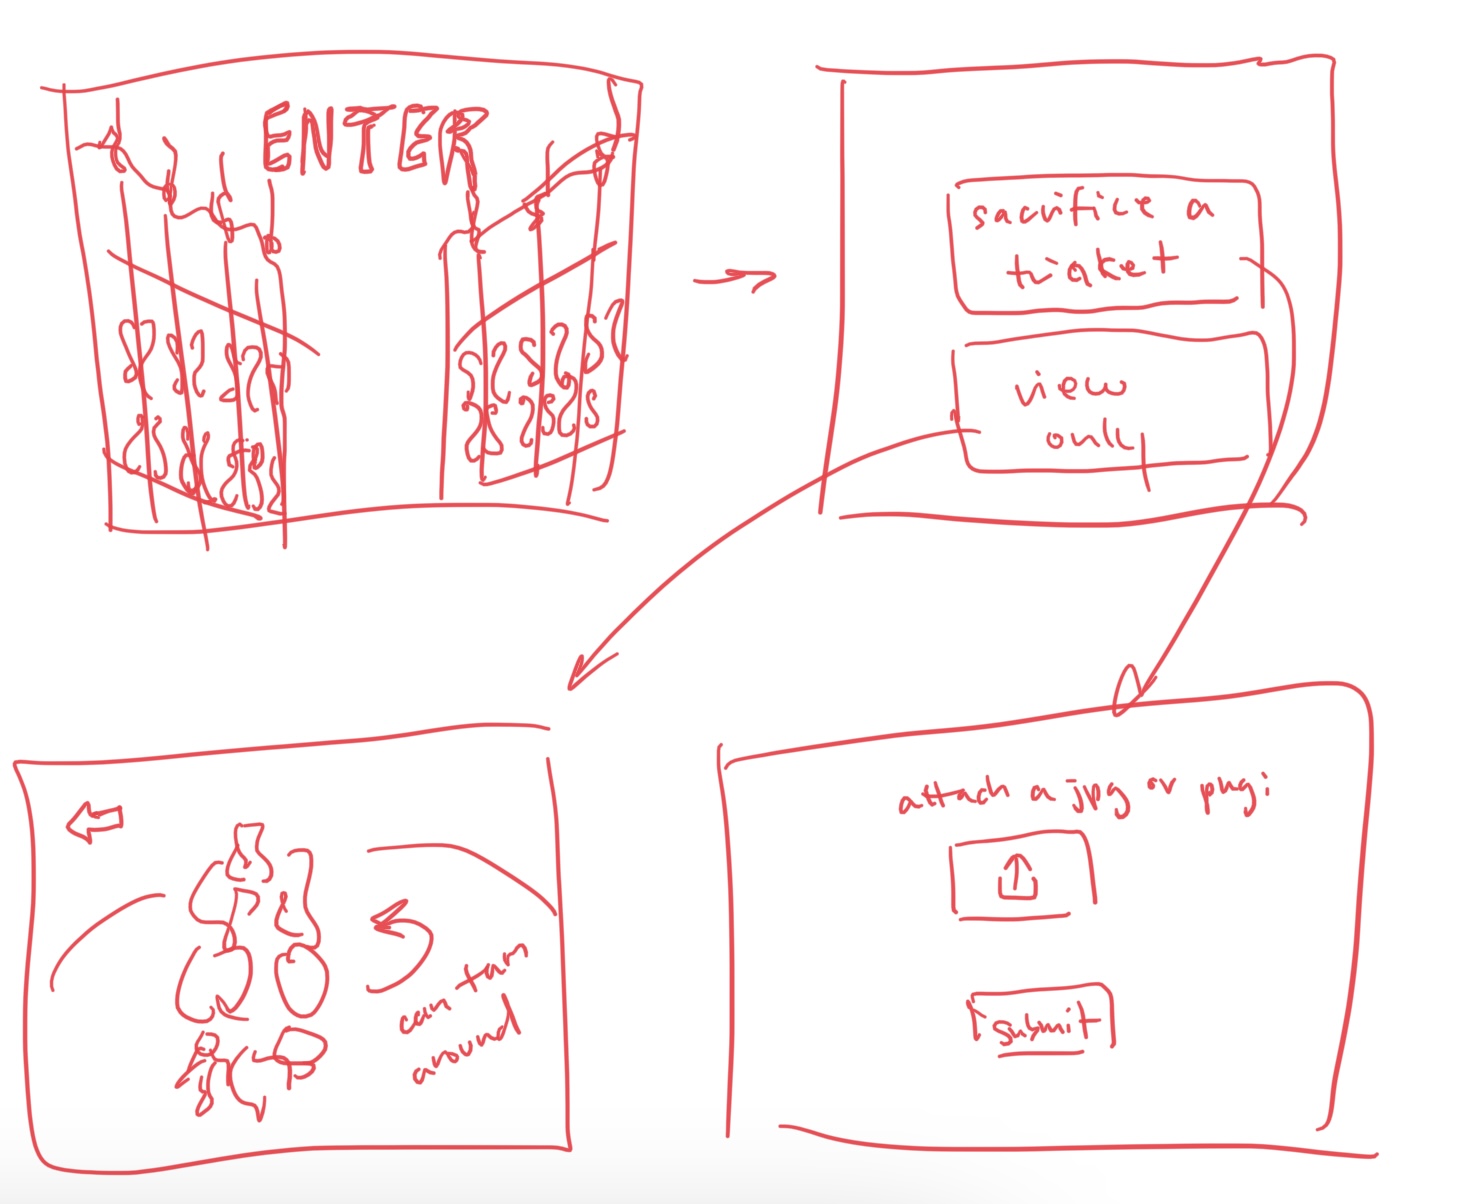 ENTER
sacrifice a
ticket
view
only
can turn
around
attach a jpg or png:
submit